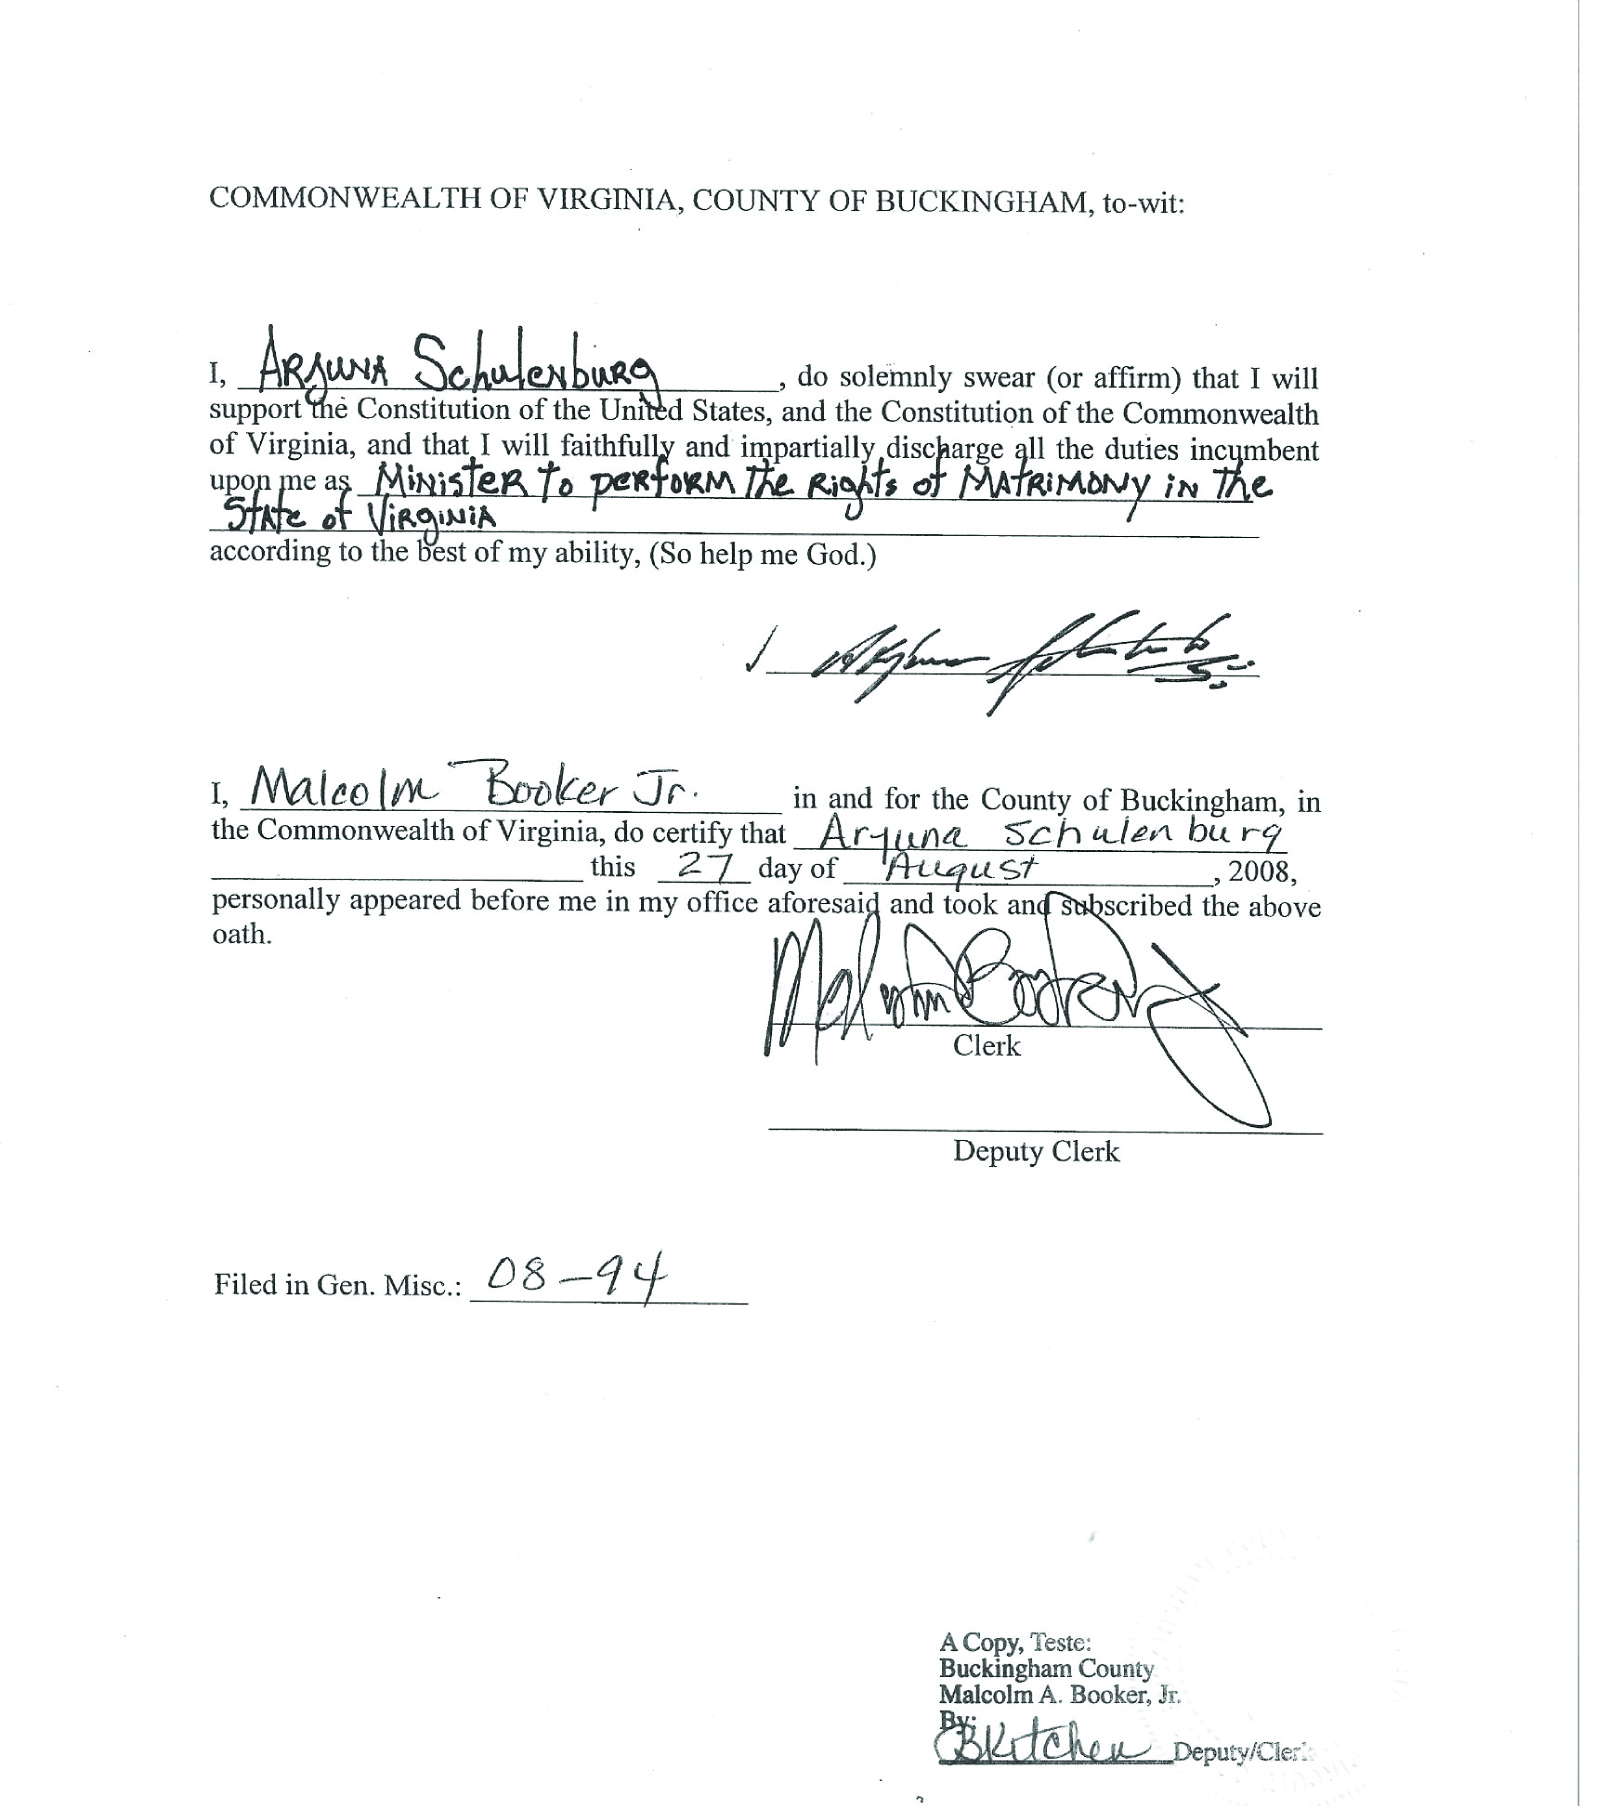 COMMONWEALTH OF VIRGINIA, COUNTY OF BUCKINGHAM, to-wit:
I, Arjuna Schulenburg, do solemnly swear (or affirm) that I will
support the Constitution of the United States, and the Constitution of the Commonwealth
of Virginia, and that I will faithfully and impartially discharge all the duties incumbent
upon me as Minister to perform the Rights of Matrimony in the
State of Virginia
according to the best of my ability, (So help me God.)
I, Malcolm Booker Jr. in and for the County of Buckingham, in
the Commonwealth of Virginia, do certify that Arjuna Schulenburg
this 27 day of August, 2008,
personally appeared before me in my office aforesaid and took and subscribed the above
oath.
Malcolm Booker Jr
Clerk
Deputy Clerk
Filed in Gen. Misc.: 08-94
A Copy, Teste:
Buckingham County
Malcolm A. Booker, Jr.
By:
BKitchen Deputy/Clerk